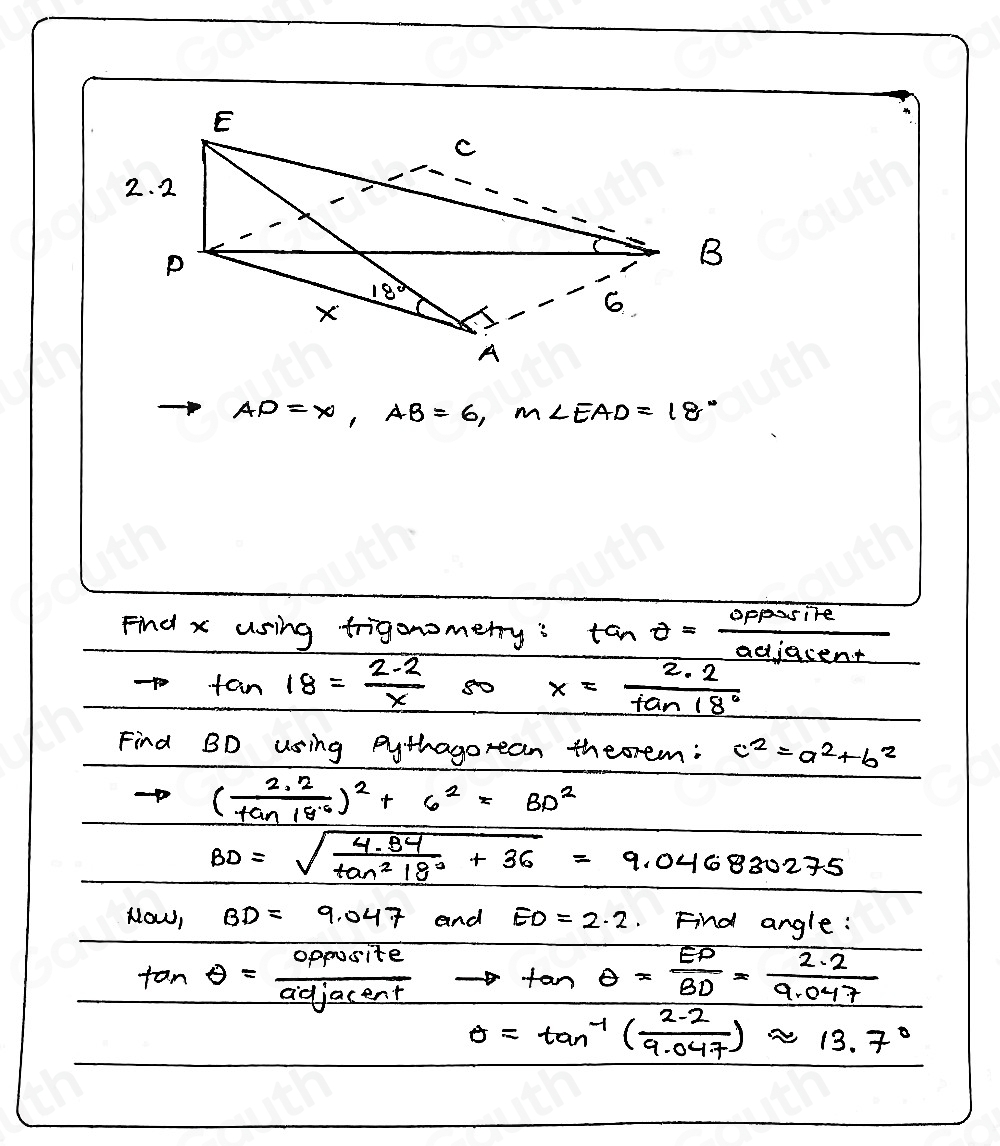 E
C
2.2
D
B
18°
x
6
A
→ AD = x, AB = 6, m∠EAD = 18°
Find x using trigonometry: tan θ = opposite / adjacent
→ tan 18 = 2.2 / x so x = 2.2 / tan 18°
Find BD using Pythagorean theorem: c² = a² + b²
→ (2.2 / tan 18°)² + 6² = BD²
BD = √(4.84 / tan² 18° + 36) = 9.046830275
Now, BD = 9.047 and ED = 2.2. Find angle:
tan θ = opposite / adjacent → tan θ = ED / BD = 2.2 / 9.047
θ = tan⁻¹ (2.2 / 9.047) ≈ 13.7°
Gauth